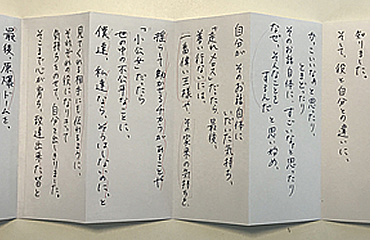 知りました。
そして、役と自分との違いに、
かっこいいなぁと思ったり
ときどきり
そのお話自体に、すごいなぁと思ったり
なぜ、そんなことを
するんだ と思いながら、
自分が、そのお話自体に
いだいた気持ち、
「走れメロス」だったら最後、
善い行ないには、
一番偉い王様や、その家来の気持ちを
揺らして動かせるチカラがあることや
「小公女」だったら
世の中の不公平なことに、
僕達 私達なら、そうはしないのに、と
見てくれる相手にも伝わるように、
それぞれの役になりきって
気持ちをのせて、自分を出しきりました。
そこまで心が育ち、到達出来た皆と
最後、原爆ドームを、